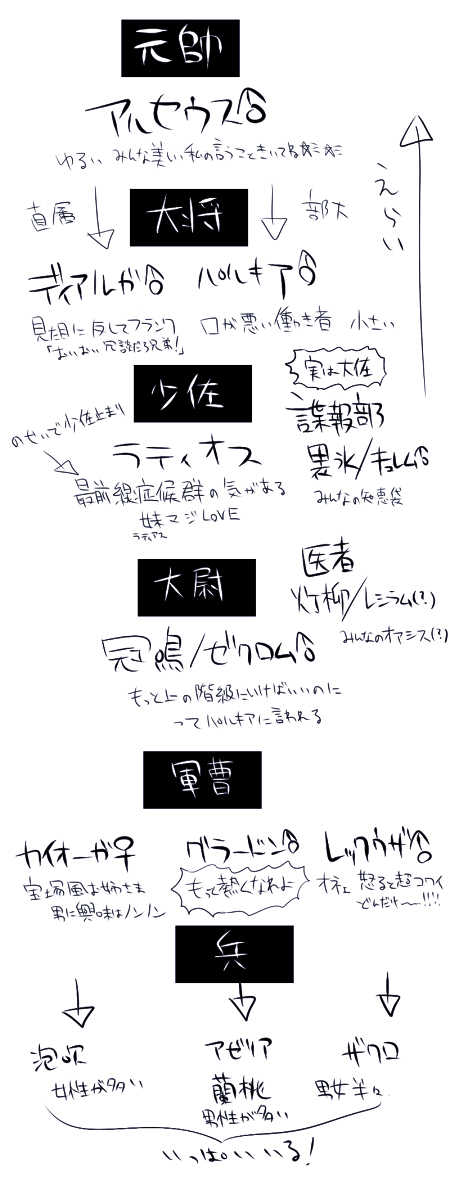 元帥
アルセウス♂
ゆるい みんな美しい私の言うこときいてね☆ミ☆ミ
えらい
直属
大将
部下
ディアルガ♂ パルキア♂
見た目に反してフランク
「おいおい冗談だろ兄弟!」
口が悪い働き者 小さい
少佐
のせいで少佐止まり
ラティオス
最前線症候群の気がある
妹マジLOVE
ラティアス
実は大佐
諜報部
裏氷/キュレム♂
みんなの知恵袋
医者
灯柳/レシラム(?)
みんなのオアシス(?)
大尉
冠鳴/ゼクロム♂
もっと上の階級にいけばいいのに
ってパルキアに言われる
軍曹
カイオーガ♀ グラードン♂ レックウザ♂
宝塚風お姉さま
男に興味はノンノン
もって熱くなれよ
オネェ 怒ると超コワイ
どんだけ〜!!!!
兵
泡吹
女性が多い
アゼリア
蘭桃
男性が多い
ザクロ
男女半々
いっぱいいる!